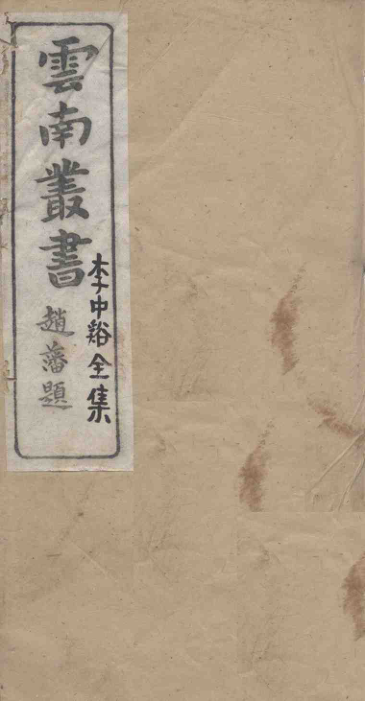 雲南叢書
李中谿全集
趙藩題